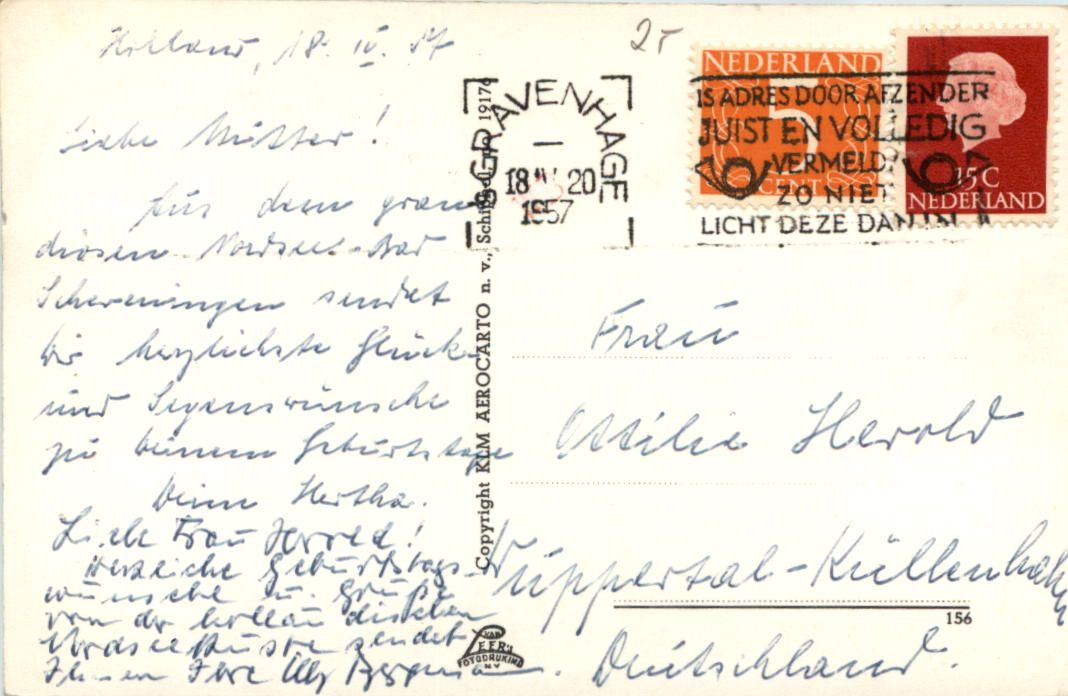 Holland, 18. IV. 57
Liebe Mutter!
Aus dem gran
diosen Nordsee-Bad
Scheveningen sendet
Dir herzlichste Glück-
und Segenswünsche
zu Deinem Geburtstage
Deine Hertha.
Liebe Frau Herold!
Herzliche Geburtstags-
wünsche u. Grüße
von der holländischen
Nordseeküste sendet
Ihnen Ihre
2-
'S GRAVENHAGE
18 IV 20
1957
NEDERLAND
5
CENT
15 C
NEDERLAND
IS ADRES DOOR AFZENDER
JUIST EN VOLLEDIG
VERMELD?
ZO NIET
LICHT DEZE DAN IN
Copyright KLM AEROCARTO n. v., Schiphol, no. 19176
Frau
Ottilie Herold
Wuppertal-Küllenhahn
156
Deutschland.
VAN
LEER'S
FOTODRUKIND
N.V.